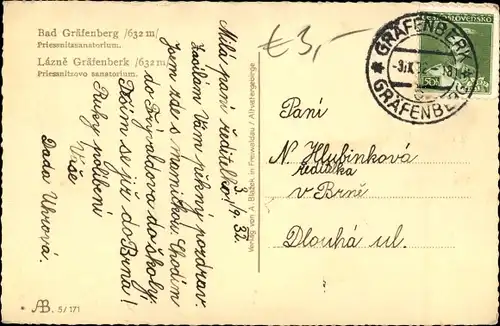 Bad Gräfenberg /632 m/
Priessnitzsanatorium.
Lázně Gräfenberk /632 m/
Priessnitzovo sanatorium.
€ 3,-
ČESKOSLOVENSKO
50h
GRÄFENBERK
-9.IX.
GRÄFENBERG
3./9. 32.
Milá paní ředitelko!
Zasílám Vám pěkný pozdrav.
Jsem zde s maminkou. Chodím
do Frývaldova do školy.
Těším se již do Brna!
Ruky políbení
Vaše
Dada Uhrová.
Verlag von A. Blažek in Freiwaldau / Altvatergebirge
Paní
N. Hlubinková
ředitelka
v Brně
Dlouhá ul.
AB. 5/171